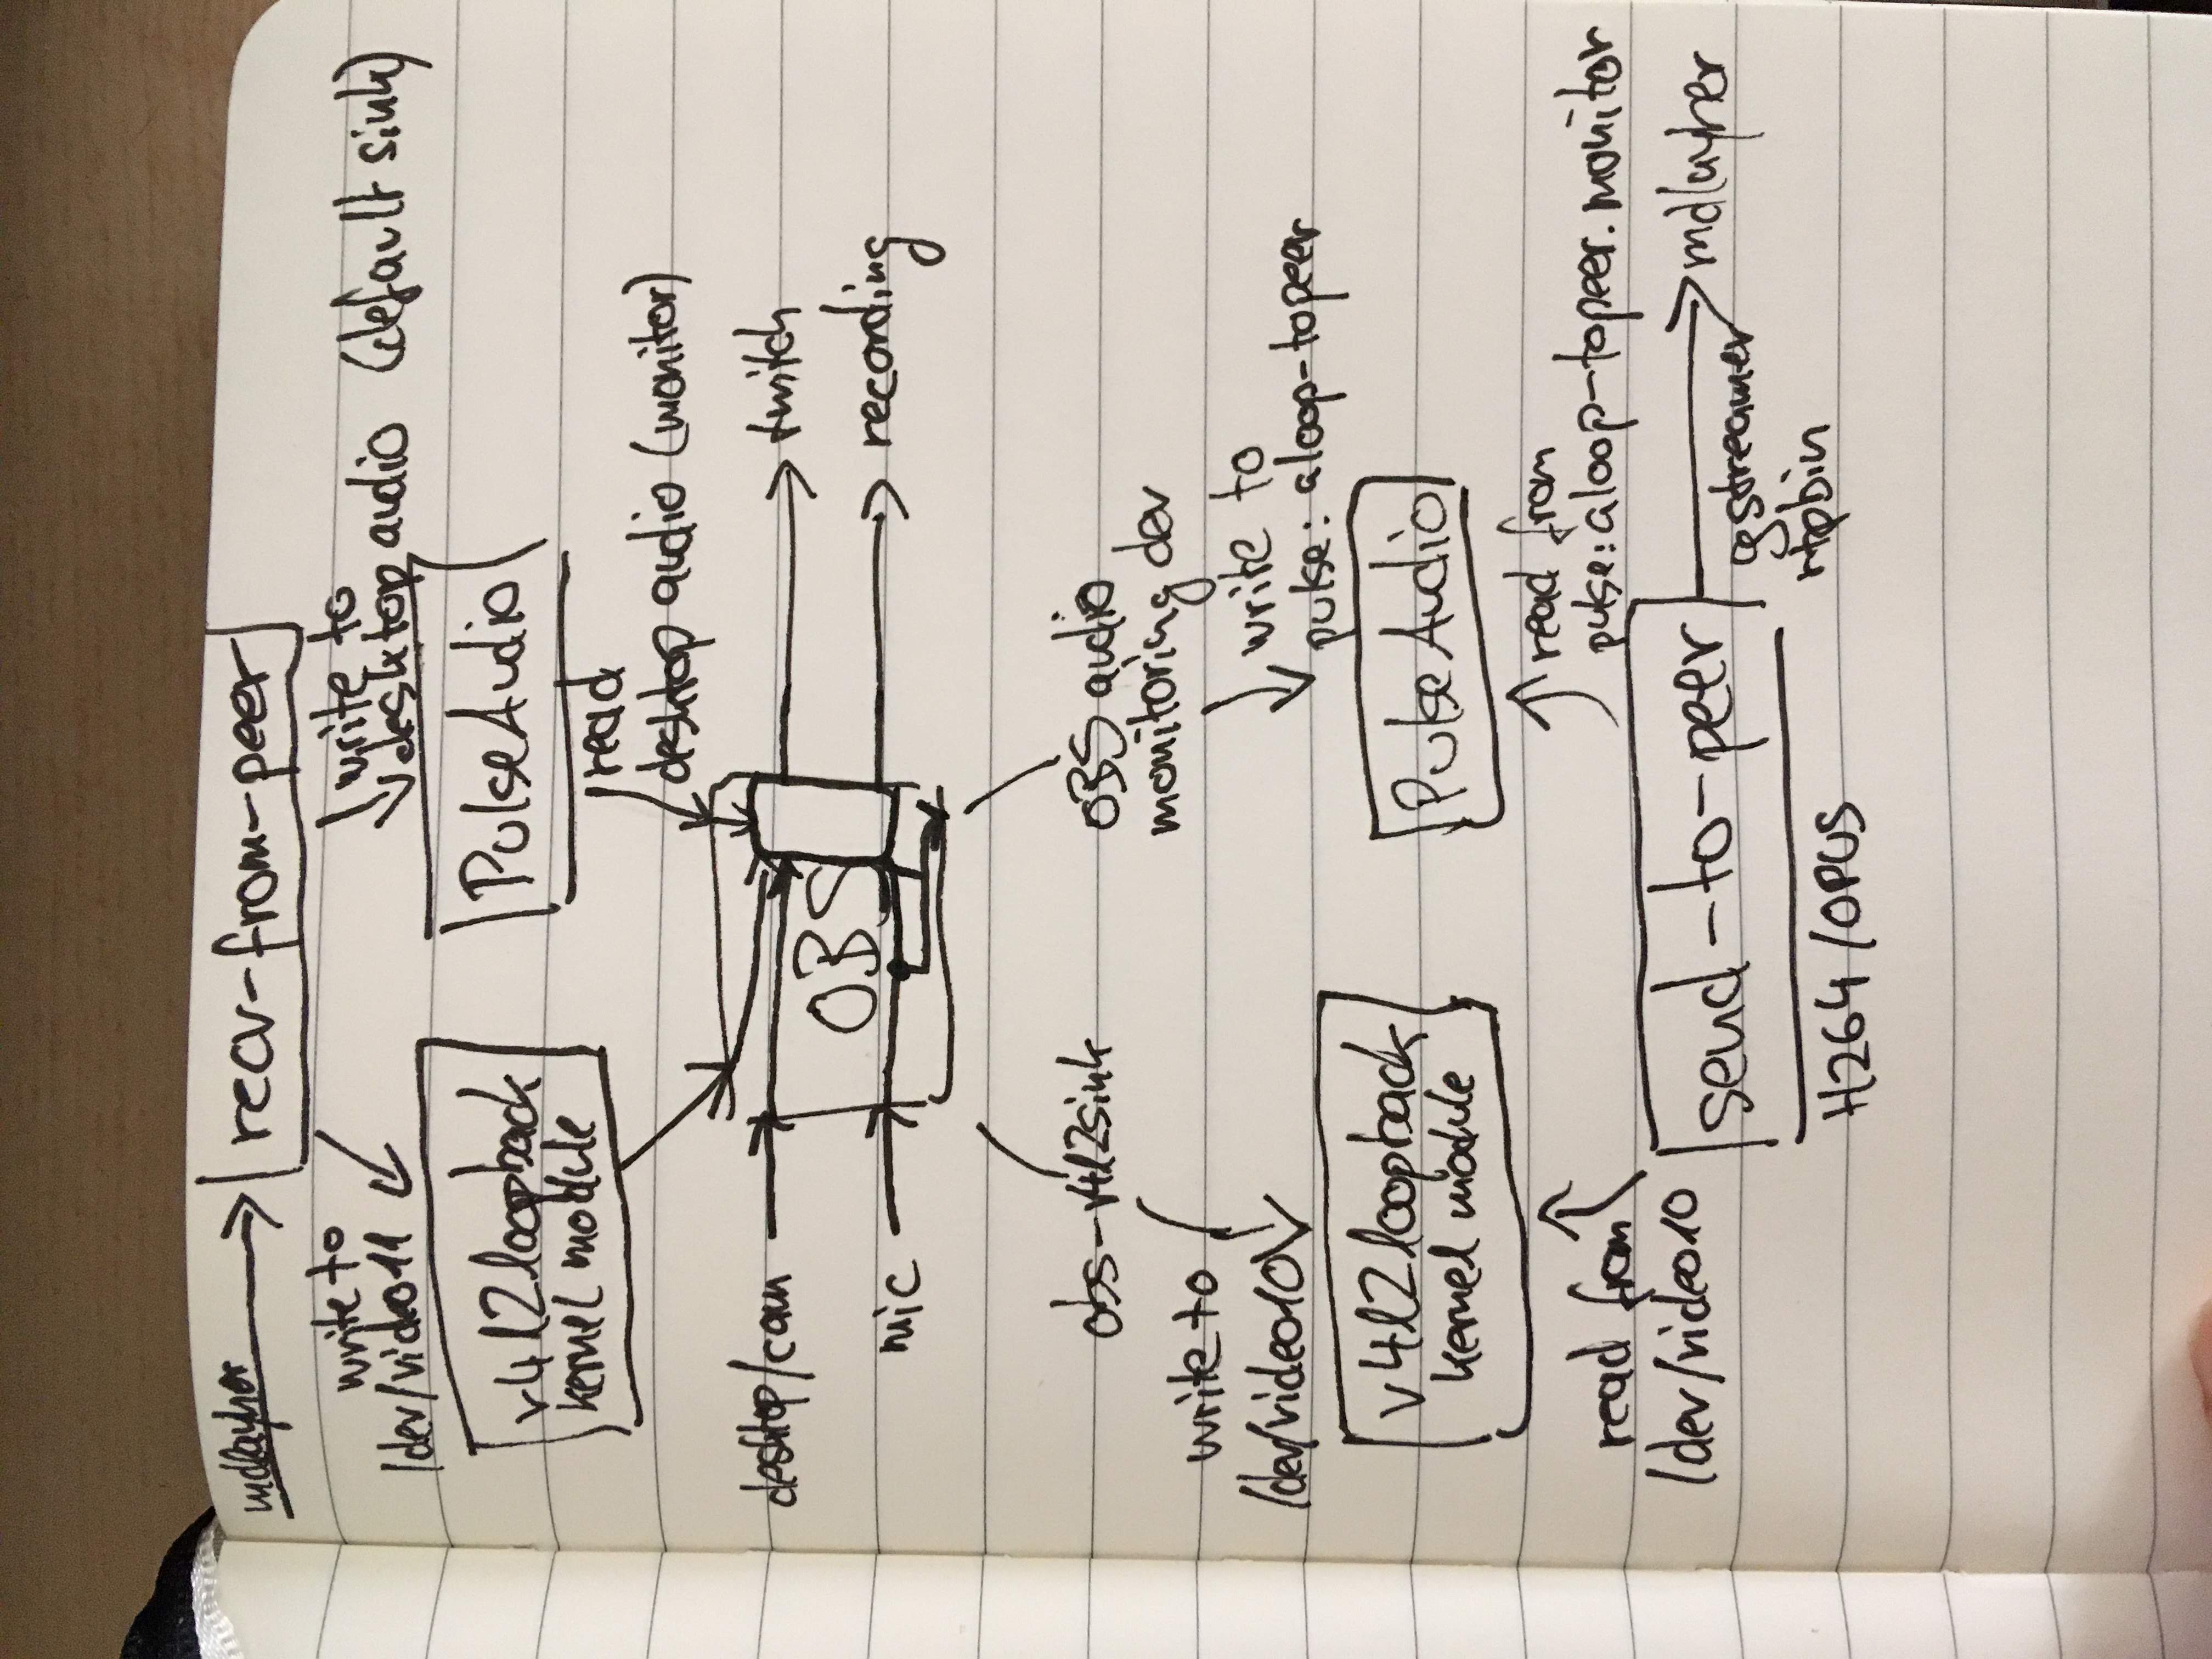 mdlayher
recv-from-peer
write to
/dev/video11
write to
desktop audio (default sink)
v4l2loopback
kernel module
PulseAudio
read
desktop audio (monitor)
desktop/cam
mic
OBS
twitch
recording
obs-v4l2sink
OBS audio
monitoring dev
write to
/dev/video10
write to
pulse: aloop-topeer
v4l2loopback
kernel module
PulseAudio
read from
/dev/video10
read from
pulse: aloop-topeer.monitor
send-to-peer
mdlayher
gstreamer
rtpbin
H264/OPUS